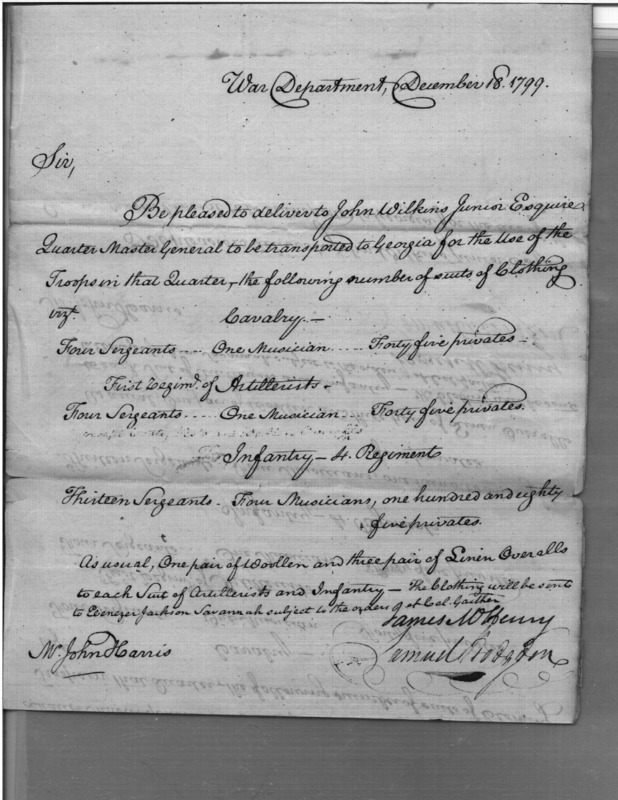 War Department, December 18. 1799.
Sir,
Be pleased to deliver to John Wilkins Junior Esquire
Quarter Master General to be transported to Georgia for the Use of the
Troops in that Quarter, the following number of suits of Clothing
vizt.
Cavalry.—
Four Sergeants .... One Musician ..... Forty five privates—
First Regimt. of Artillerists.
Four Sergeants .... One Musician .... Forty five privates.
Infantry— 4. Regiment
Thirteen Sergeants. Four Musicians, one hundred and eighty
five privates.
As usual, One pair of Woollen and three pair of Linen Overalls
to each Suit of Artillerists and Infantry— The Clothing will be sent
to Ebenezer Jackson Savannah subject to the orders of Lt Col. Gaither
James McHenry
Mr. John Harris
Samuel Hodgdon